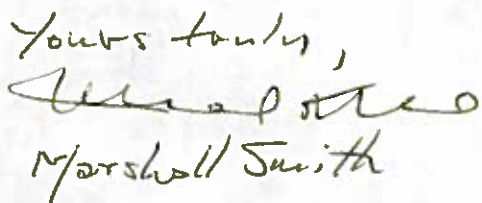 Yours truly,
Marshall Smith